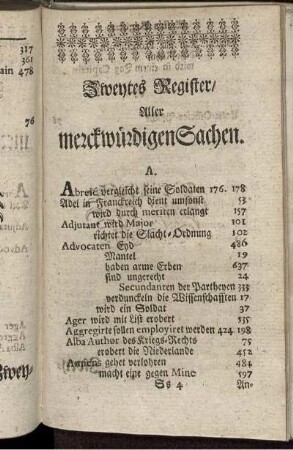 317
361
ain 478
76
Zwey-
Zweytes Register/
Aller
merckwürdigen Sachen.
A.
vergleicht seine Soldaten 176. 178
Adel in Franckreich dient umsonst 53
wird durch meriten erlangt 157
Adjutant wird Major 101
richtet die Slacht-Ordnung 102
Advocaten Eyd 486
Mantel 19
haben arme Erben 637
sind ungerecht 24
Secundanten der Partheyen 333
verdunckeln die Wissenschafften 17
wird ein Soldat 37
Ager wird mit List erobert 535
Aggregirte sollen employiret werden 424 198
Alba Author des Kriegs-Rechts 75
erobert die Niederlande 452
Amiens gehet verlohren 484
macht eine gegen Mine 597
Ss 4 An-